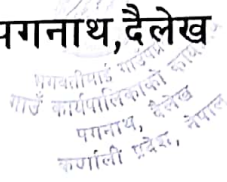 पगनाथ,दैलेख
भगवतीमाई गाउँपालिका
गाउँ कार्यपालिकाको कार्यालय
पगनाथ, दैलेख
कर्णाली प्रदेश, नेपाल